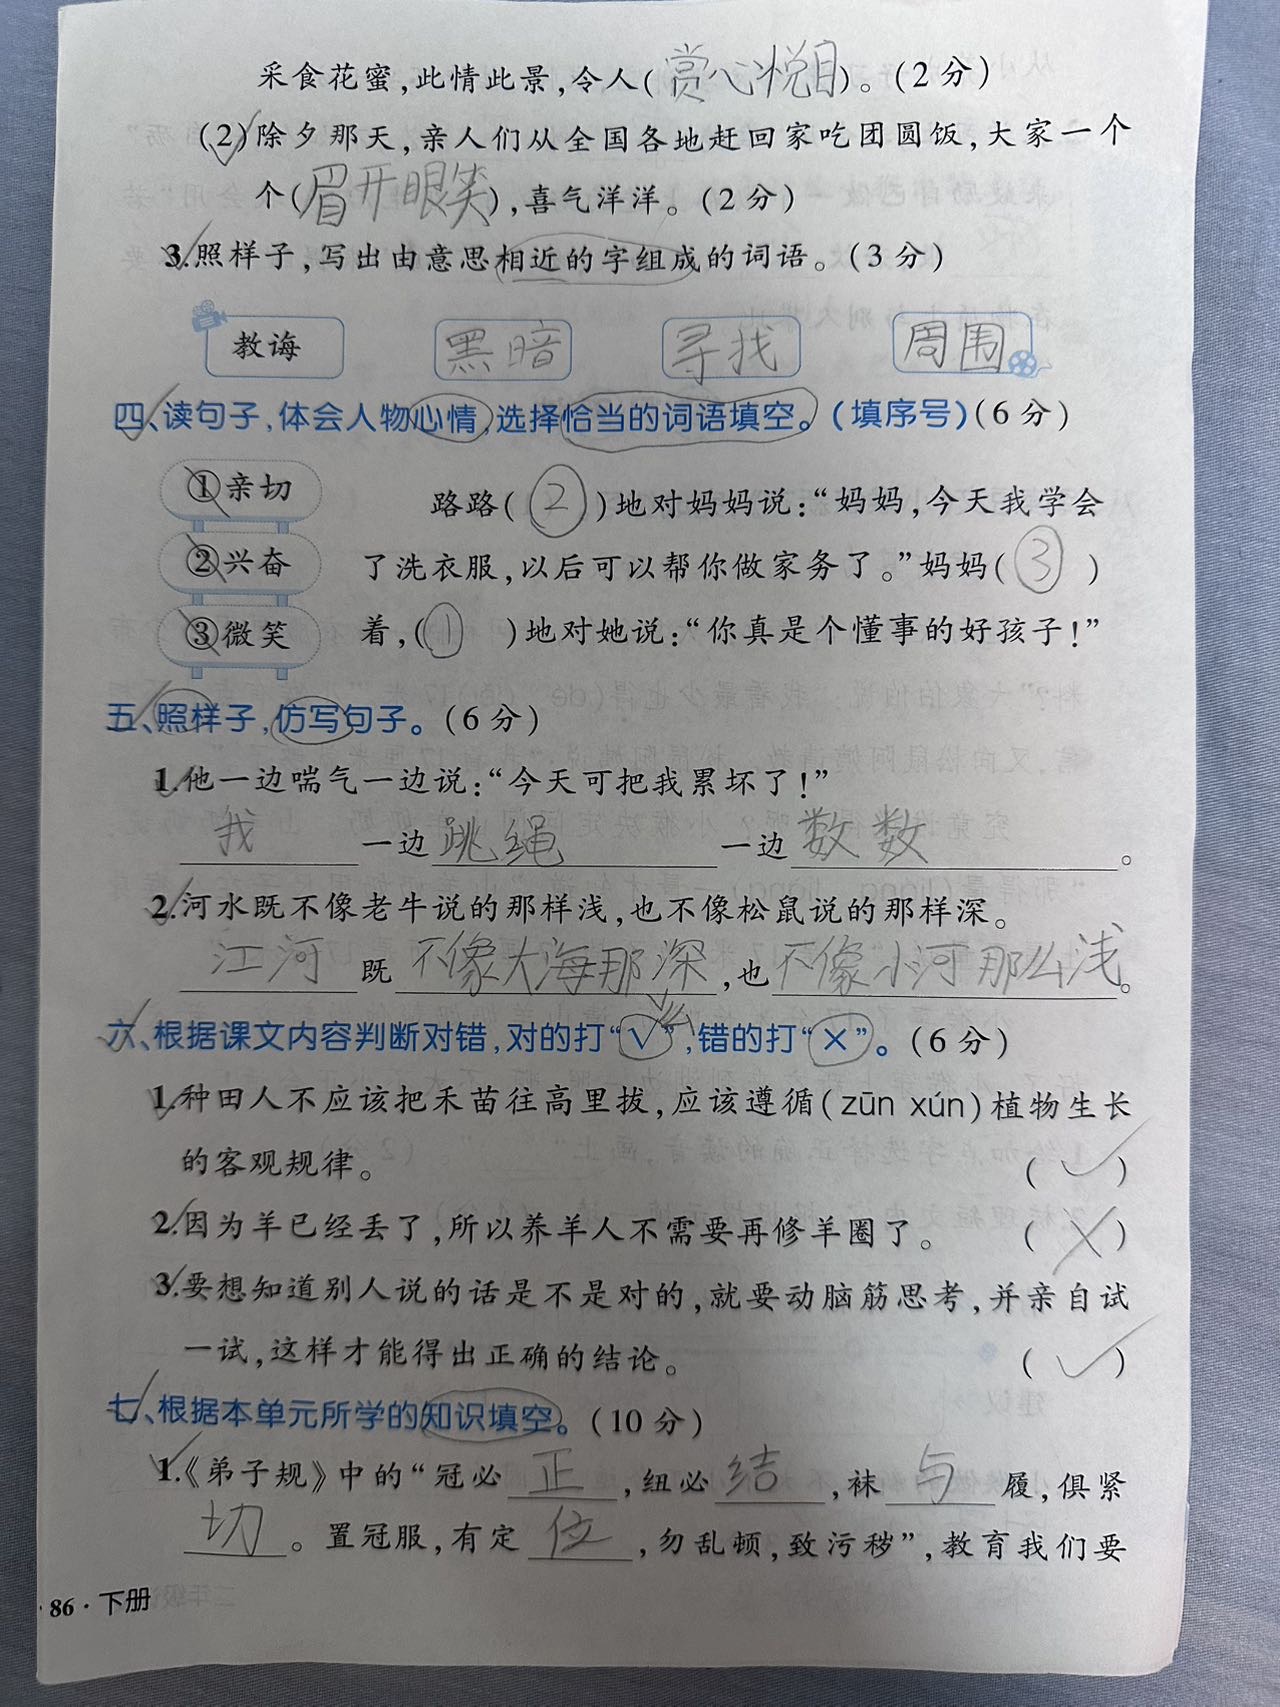 采食花蜜,此情此景,令人(赏心悦目)。(2分)
(2)除夕那天,亲人们从全国各地赶回家吃团圆饭,大家一个
个(眉开眼笑),喜气洋洋。(2分)
3.照样子,写出由意思相近的字组成的词语。(3分)
教诲 黑暗 寻找 周围
四、读句子,体会人物心情,选择恰当的词语填空。(填序号)(6分)
①亲切 路路(②)地对妈妈说:“妈妈,今天我学会
②兴奋 了洗衣服,以后可以帮你做家务了。”妈妈(③)
③微笑 着,(①)地对她说:“你真是个懂事的好孩子!”
五、照样子,仿写句子。(6分)
1.他一边喘气一边说:“今天可把我累坏了!”
我 一边 跳绳 一边 数数 。
2.河水既不像老牛说的那样浅,也不像松鼠说的那样深。
江河 既 不像大海那么深 ,也 不像小河那么浅 。
六、根据课文内容判断对错,对的打“√”,错的打“×”。(6分)
1.种田人不应该把禾苗往高里拔,应该遵循(zūn xún)植物生长
的客观规律。 (✓)
2.因为羊已经丢了,所以养羊人不需要再修羊圈了。 (×)
3.要想知道别人说的话是不是对的,就要动脑筋思考,并亲自试
一试,这样才能得出正确的结论。 (✓)
七、根据本单元所学的知识填空。(10分)
1.《弟子规》中的“冠必 正 ,纽必 结 ,袜 与 履,俱紧
切 。置冠服,有定 位 ,勿乱顿,致污秽”,教育我们要
·86·下册